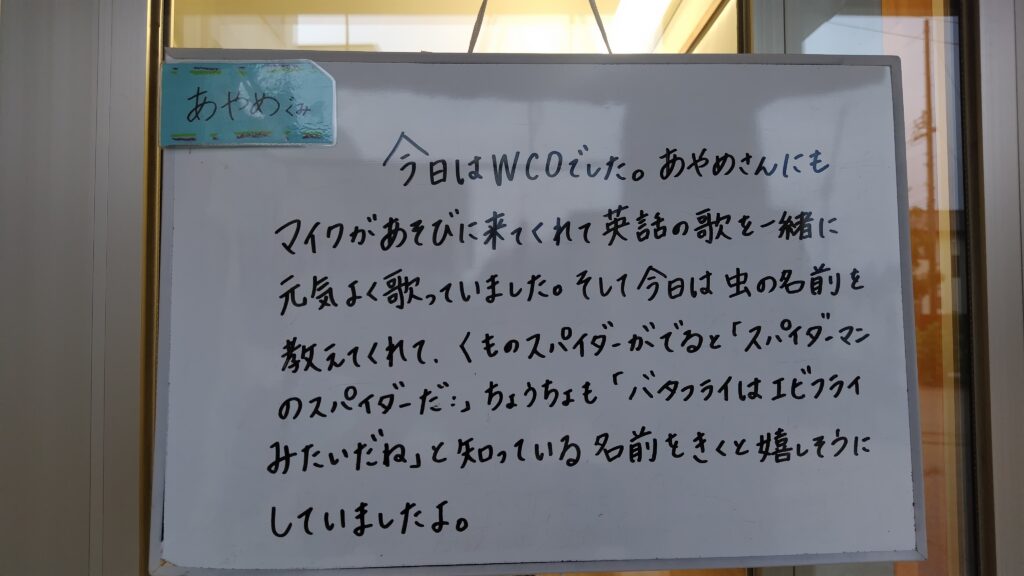 あやめぐみ
今日はWCOでした。あやめさんにも
マイクがあそびに来てくれて英話の歌を一緒に
元気よく歌っていました。そして今日は虫の名前を
教えてくれて、くものスパイダーがでると「スパイダーマン
のスパイダーだ!!」ちょうちょも「バタフライはエビフライ
みたいだね」と知っている名前をきくと嬉しそうに
していましたよ。